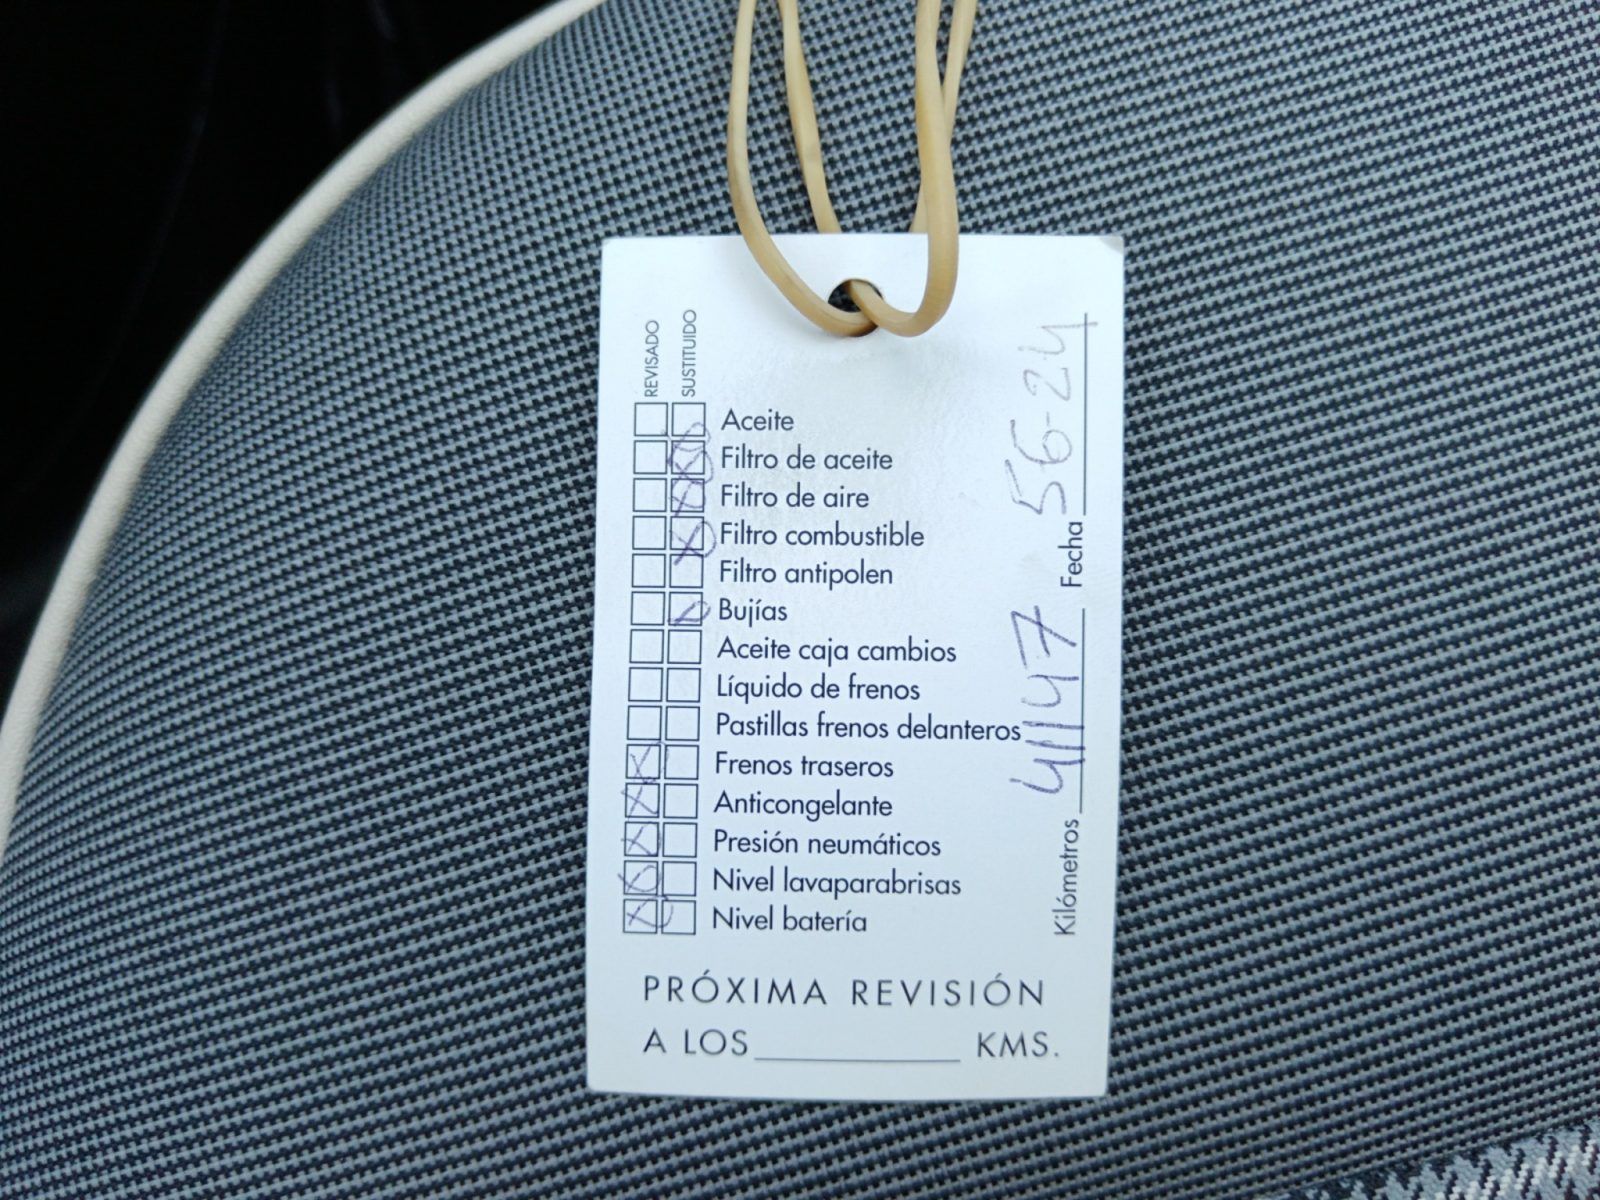 REVISADO
SUSTITUIDO
Aceite
Filtro de aceite
Filtro de aire
Filtro combustible
Filtro antipolen
Bujías
Aceite caja cambios
Líquido de frenos
Pastillas frenos delanteros
Frenos traseros
Anticongelante
Presión neumáticos
Nivel lavaparabrisas
Nivel batería
Kilómetros 41147 Fecha 56-24
PRÓXIMA REVISIÓN
A LOS__________ KMS.